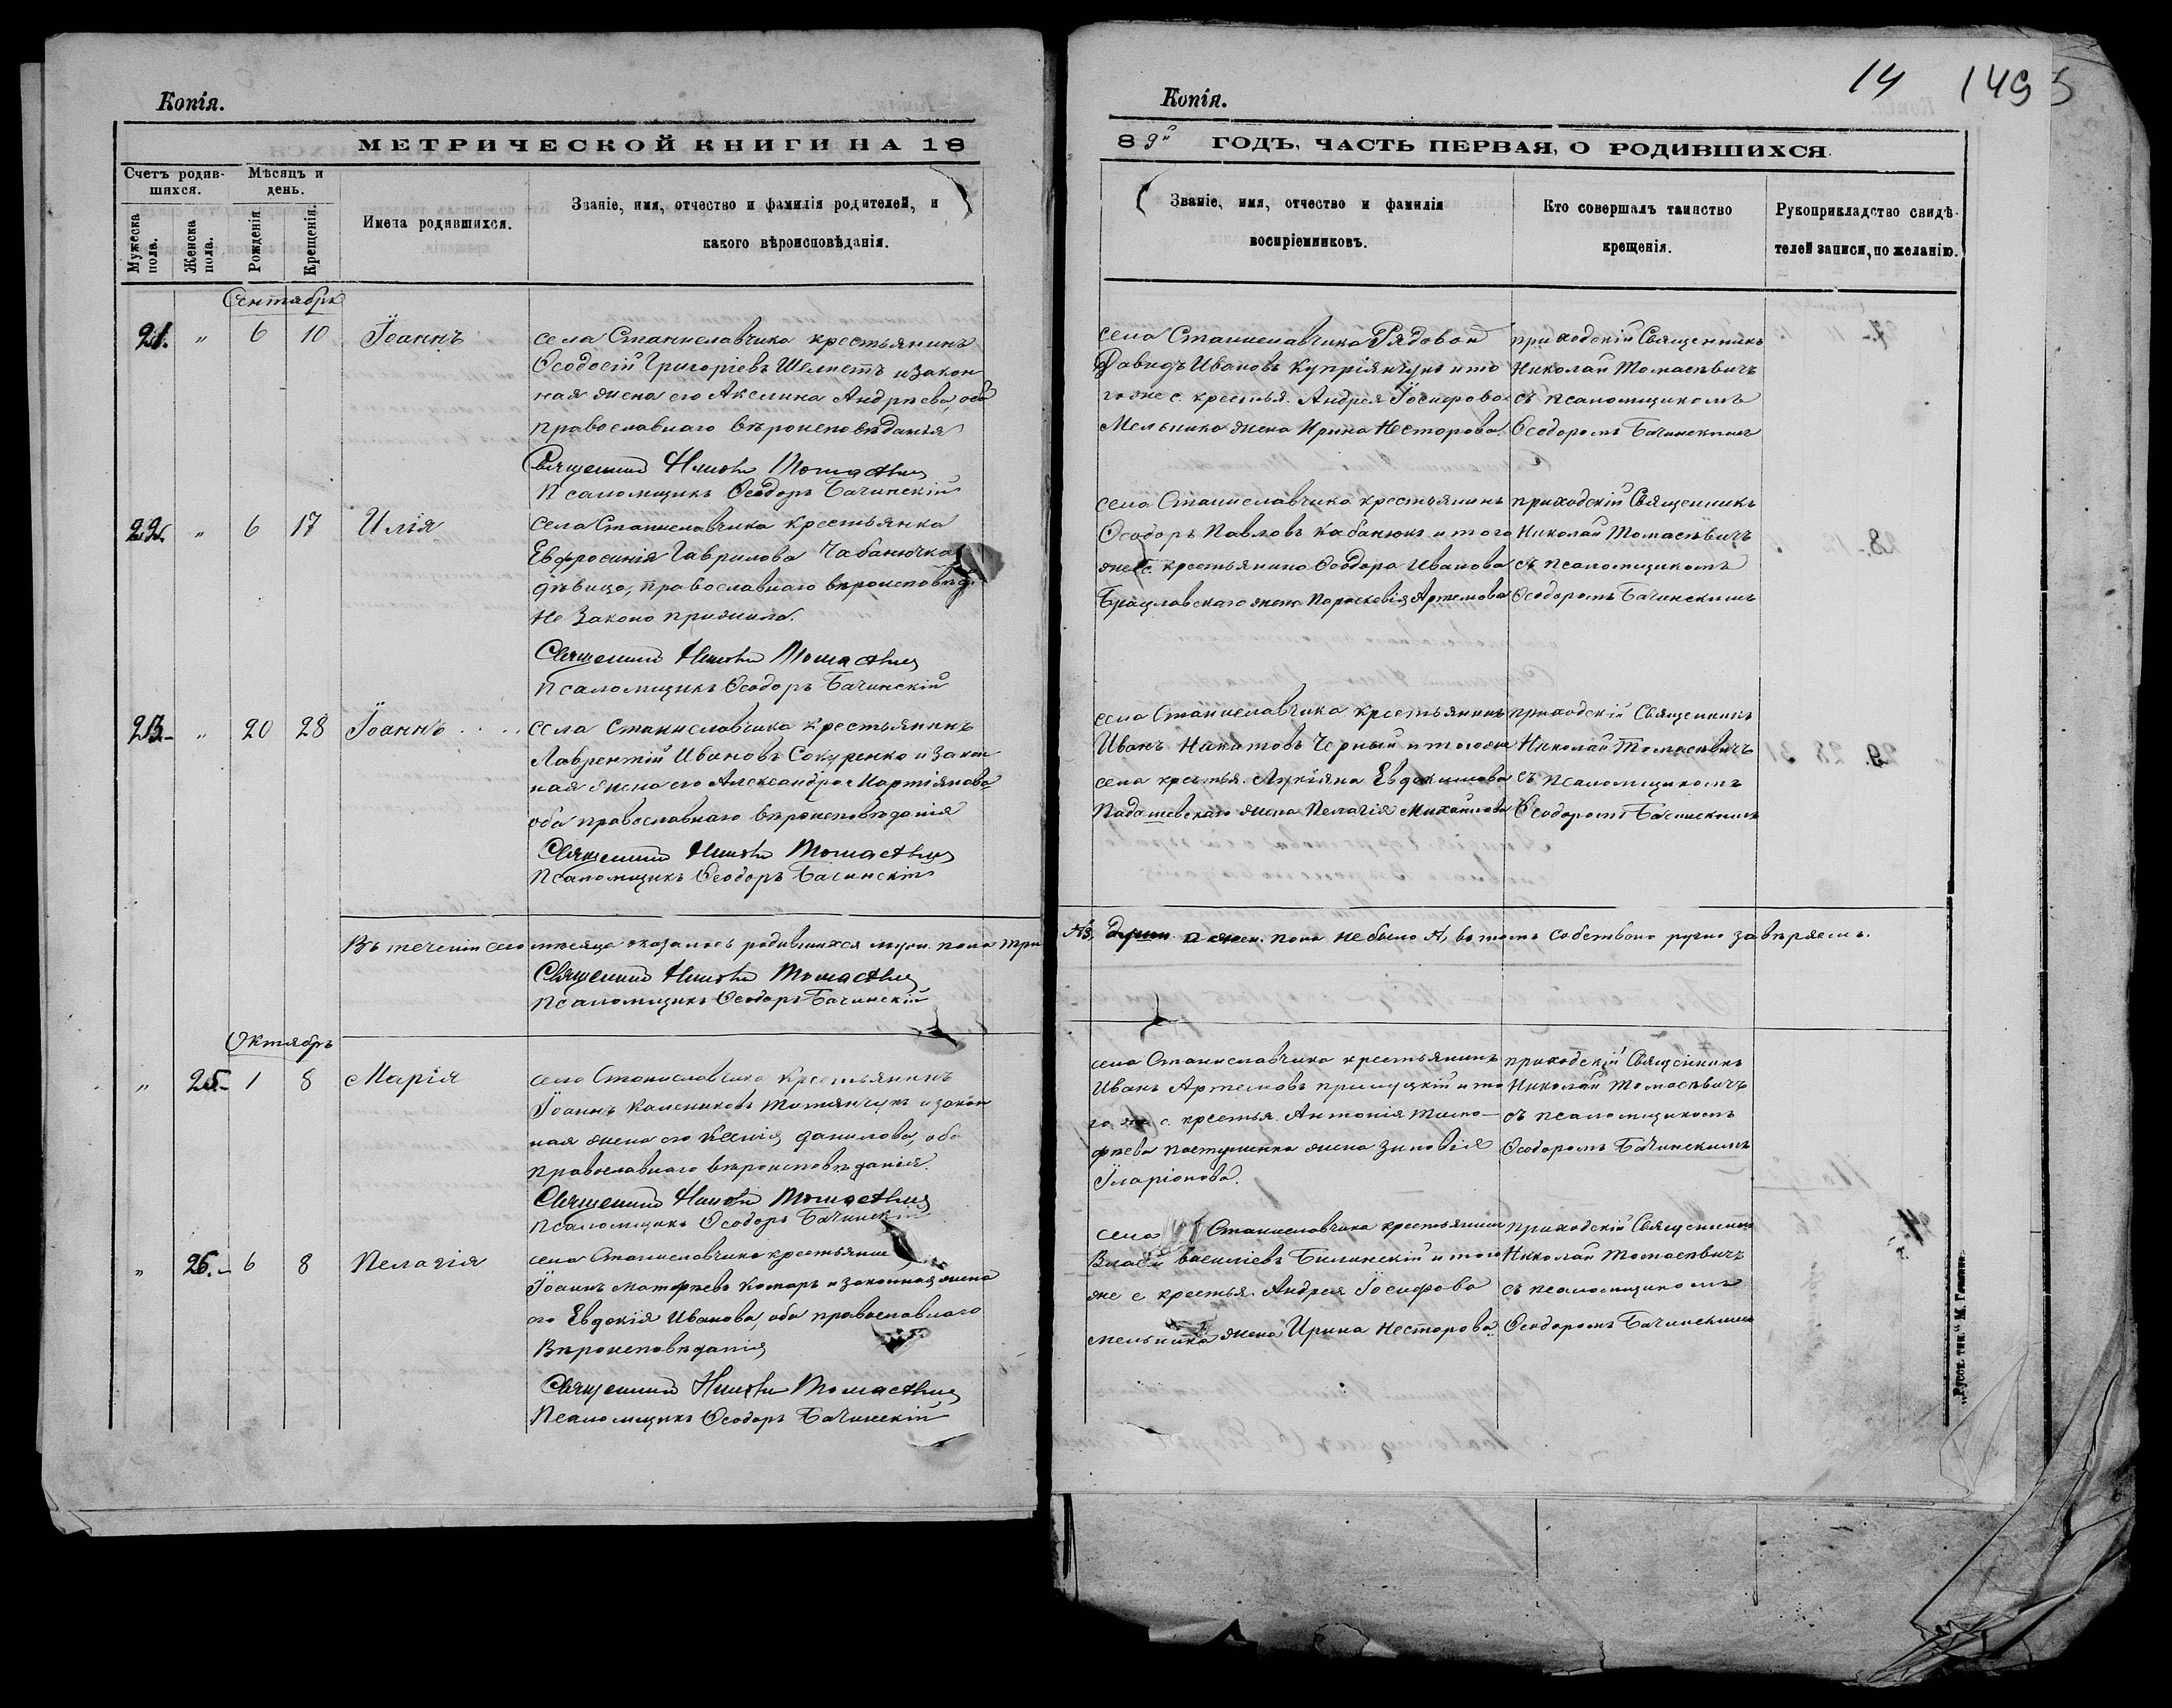 Копія.
МЕТРИЧЕСКОЙ КНИГИ НА 18
Счетъ родив-
шихся.
Мѣсяцъ и
день.
Мужеска
пола.
Женска
пола.
Рожденія.
Крещенія.
Имена родившихся.
Званіе, имя, отчество и фамилія родителей, и
какого вѣроисповѣданія.
Сентябрь
21. " 6 10 Іоаннъ
села Станиславчика крестьянинъ
Ѳеодосій Григоріевъ Шелестъ и закон
ная жена его Акелина Андреева, оба
православнаго вѣроисповѣданія
Священникъ Николай Томасевичъ
Псаломщикъ Ѳеодоръ Бачинскій
22. " 6 17 Илія
Села Станиславчика крестьянка
Евфросинія Гаврилова Чабанючка
дѣвица, православнаго вѣроисповѣд.
не законо прижила.
Священникъ Николай Томасевичъ
Псаломщикъ Ѳеодоръ Бачинскій
23. " 20 28 Іоаннъ
села Станиславчика крестьянинъ
Лаврентій Ивановъ Сокуренко и закон
ная жена его Александра Мартіянова
оба православнаго вѣроисповѣданія
Священникъ Николай Томасевичъ
Псаломщикъ Ѳеодоръ Бачинскій
Въ теченіи сего мѣсяца оказалось родившихся муж. пола три
Священникъ Николай Томасевичъ
Псаломщикъ Ѳеодоръ Бачинскій
Октябрь
" 25. 1 8 Марія
села Станиславчика крестьянинъ
Іоаннъ Калениковъ и закон
ная жена его Ксенія Данилова, оба
православнаго вѣроисповѣданія.
Священникъ Николай Томасевичъ
Псаломщикъ Ѳеодоръ Бачинскій
" 26. 6 8 Пелагія
села Станиславчика крестьянин
Іоаннъ Матфѣевъ Комаръ и законная жена
его Евдокія Иванова, оба православнаго
Вѣроисповѣданія
Священникъ Николай Томасевичъ
Псаломщикъ Ѳеодоръ Бачинскій
14 1495
Копія.
89й ГОДЪ, ЧАСТЬ ПЕРВАЯ, О РОДИВШИХСЯ.
Званіе, имя, отчество и фамилія
воспріемниковъ.
Кто совершалъ таинство
крещенія.
Рукоприкладство свидѣ-
телей записи, по желанію.
села Станиславчика Рядовой
Давидъ Ивановъ Купріянчукъ и то
го же с. крестья. Андрея Іосифова
Мельника жена Ирина Несторова.
приходскій Священникъ
Николай Томасевичъ
съ псаломщикомъ
Ѳеодоромъ Бачинскимъ
села Станиславчика крестьянинъ
Ѳеодоръ Павловъ Кабанюкъ и того
же с. крестьянина Ѳеодора Иванова
Брацлавскаго жена Параскевія Артемова
приходскій Священникъ
Николай Томасевичъ
съ псаломщикомъ
Ѳеодоромъ Бачинскимъ
села Станиславчика крестьянинъ
Иванъ Никитовъ Черный и того же
села крестья. Лукіяна Евдокимова
Падашевскаго жена Пелагія Михайлова
приходскій Священникъ
Николай Томасевичъ
съ псаломщикомъ
Ѳеодоромъ Бачинскимъ
№3. а женс. пола не было №, въ томъ собственно ручно завѣряемъ.
села Станиславчика крестьянинъ
Иванъ Артемовъ прилуцкій и то
го же с. крестья. Антонія Тимо-
фѣева жена Зиновія
Іларіонова.
приходскій Священникъ
Николай Томасевичъ
съ псаломщикомъ
Ѳеодоромъ Бачинскимъ
села Станиславчика крестьянинъ
Власій Василіевъ Билинскій и того
же с крестья. Андрея Іосифова
мельника жена Ирина Несторова.
приходскій Священникъ
Николай Томасевичъ
съ псаломщикомъ
Ѳеодоромъ Бачинскимъ